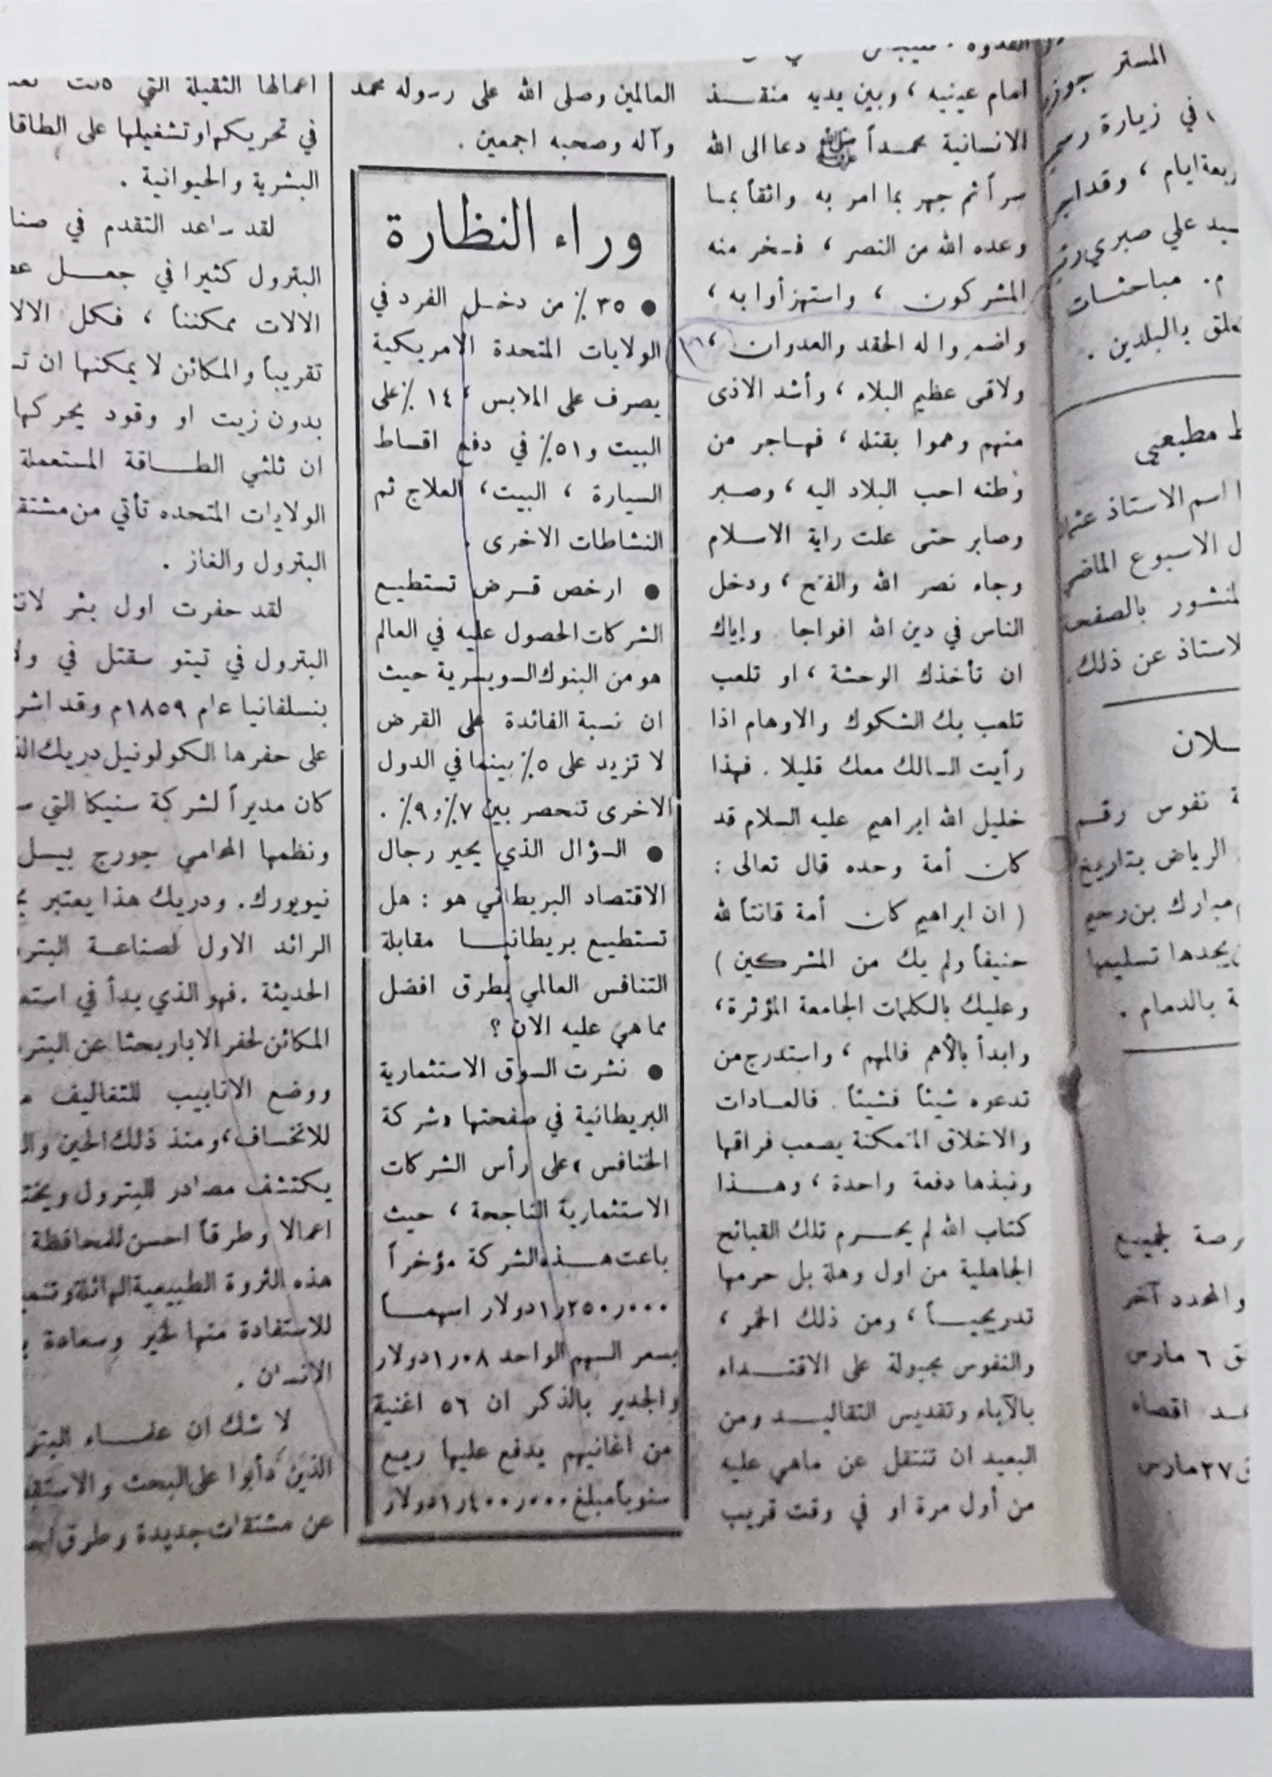 المستر جوزر
في زيارة رسمي
ربعة ايام ، وقد اجر
سيد علي صبري رئي
م . مباحثات
علق بالبلدين .
ط مطبعي
ا اسم الاستاذ عثما
ل الاسبوع الماضي
لمنشور بالصفحة
لاستاذ عن ذلك .
ـلان
ة نفوس رقم
الرياض بتاريخ
مبارك بن رحيم
يجدها تسليمها
ة بالدمام .
رصة لجميع
والمحدد آخر
ق ٦ مارس
ـد اقصاه
ق ٢٧ مارس
امام عينيه ، وبين يديه منقـــذ
الانسانية محمــداً ﷺ دعا الى الله
سراً ثم جهر بما امر به واثقاً بمـا
وعده الله من النصر ، فسخر منه
المشركون ، واستهزأوا به ،
واضمروا له الحقد والعدوان ،
ولاقى عظيم البلاء ، وأشد الاذى
منهم وهموا بقتله ، فهاجر من
وطنه احب البلاد اليه ، وصبر
وصابر حتى علت راية الاسلام
وجاء نصر الله والفتح ، ودخل
الناس في دين الله افواجا وإياك
ان تأخذك الوحشة ، او تلعب
تلعب بك الشكوك والاوهام اذا
رأيت السالك معك قليلا . فهذا
خليل الله ابراهيم عليه السلام قد
كان أمة وحده قال تعالى :
( ان ابراهيم كان أمة قانتاً لله
حنيفاً ولم يك من المشركين )
وعليك بالكلمات الجامعة المؤثرة ،
وابدأ بالأهم فالمهم ، واستدرج من
تدعوه شيئاً فشيئاً . فالعـادات
والاخلاق المتمكنة يصعب فراقها
ونبذها دفعة واحدة ، وهـذا
كتاب الله لم يحـرم تلك القبائح
الجاهلية من اول وهلة بل حرمها
تدريجيـاً ، ومن ذلك الخمر ،
والنفوس مجبولة على الاقتـداء
بالآباء وتقديس التقاليـد ومن
البعيد ان تنتقل عن ماهي عليه
من أول مرة او في وقت قريب
العالمين وصلى الله على رسوله محمد
وآله وصحبه اجمعين .
وراء النظارة
● ٣٥ ٪ من دخل الفرد في
الولايات المتحدة الامريكية
يصرف على الملابس ، ١٤ ٪ على
البيت و ٥١٪ في دفع اقساط
السيارة ، البيت ، العلاج ثم
النشاطات الاخرى .
● ارخص قـرض تستطيع
الشركات الحصول عليه في العالم
هو من البنوك السويسرية حيث
ان نسبة الفائدة على القرض
لا تزيد على ٥٪ بينما في الدول
الاخرى تنحصر بين ٧٪ و ٩٪ .
● السؤال الذي يحير رجال
الاقتصاد البريطاني هو : هل
تستطيع بريطانيـا مقابلة
التنافس العالمي بطرق افضل
مما هي عليه الان ؟
● نشرت السوق الاستثمارية
البريطانية في صفحتها «شركة
الخنافس» على رأس الشركات
الاستثمارية الناجحة ، حيث
باعت هــذه الشركة مؤخراً
١٫٢٥٠٫٠٠٠ دولار اسهمـاً
بسعر السهم الواحد ١٫٠٨ دولار
والجدير بالذكر ان ٥٦ اغنية
من اغانيهم يدفع عليها ريـع
سنوياً مبلغ ١٫٤٠٠٫٠٠٠ دولار
اعمالها الثقيلة التي كانت تعت
في تحريكها وتشغيلها على الطاقا
البشرية والحيوانية .
لقد ساعد التقدم في صنا
البترول كثيرا في جعـل عد
الالات ممكنناً ، فكل الالا
تقريباً والمكائن لا يمكنها ان تـ
بدون زيت او وقود يحركها
ان ثلثي الطـاقة المستعملة
الولايات المتحده تأتي من مشتقـ
البترول والغاز .
لقد حفرت اول بئر لانتـ
البترول في تيتو سقتل في ولا
بنسلفانيا عام ١٨٥٩م وقد اشر
على حفرها الكولونيل دريك الذ
كان مديراً لشركة سنيكا التي سـ
ونظمها المحامي جورج بيـل
نيويورك. ودريك هذا يعتبر بحـ
الرائد الاول لصناعـة البتر
الحديثة . فهو الذي بدأ في استعـ
المكائن لحفر الابار بحثا عن البتر
ووضع الانابيب للتفاليف
للانخساف ، ومنذ ذلك الحين وال
يكتشف مصادر للبترول ويختـ
اعمالا وطرقاً احسن للمحافظة
هذه الثروة الطبيعية الهائلة وتنميـ
للاستفادة منها لخير وسعادة
الانسان .
لا شك ان علمـاء البتر
الذين دأبوا على البحث والاستقـ
عن مشتقات جديدة وطرق